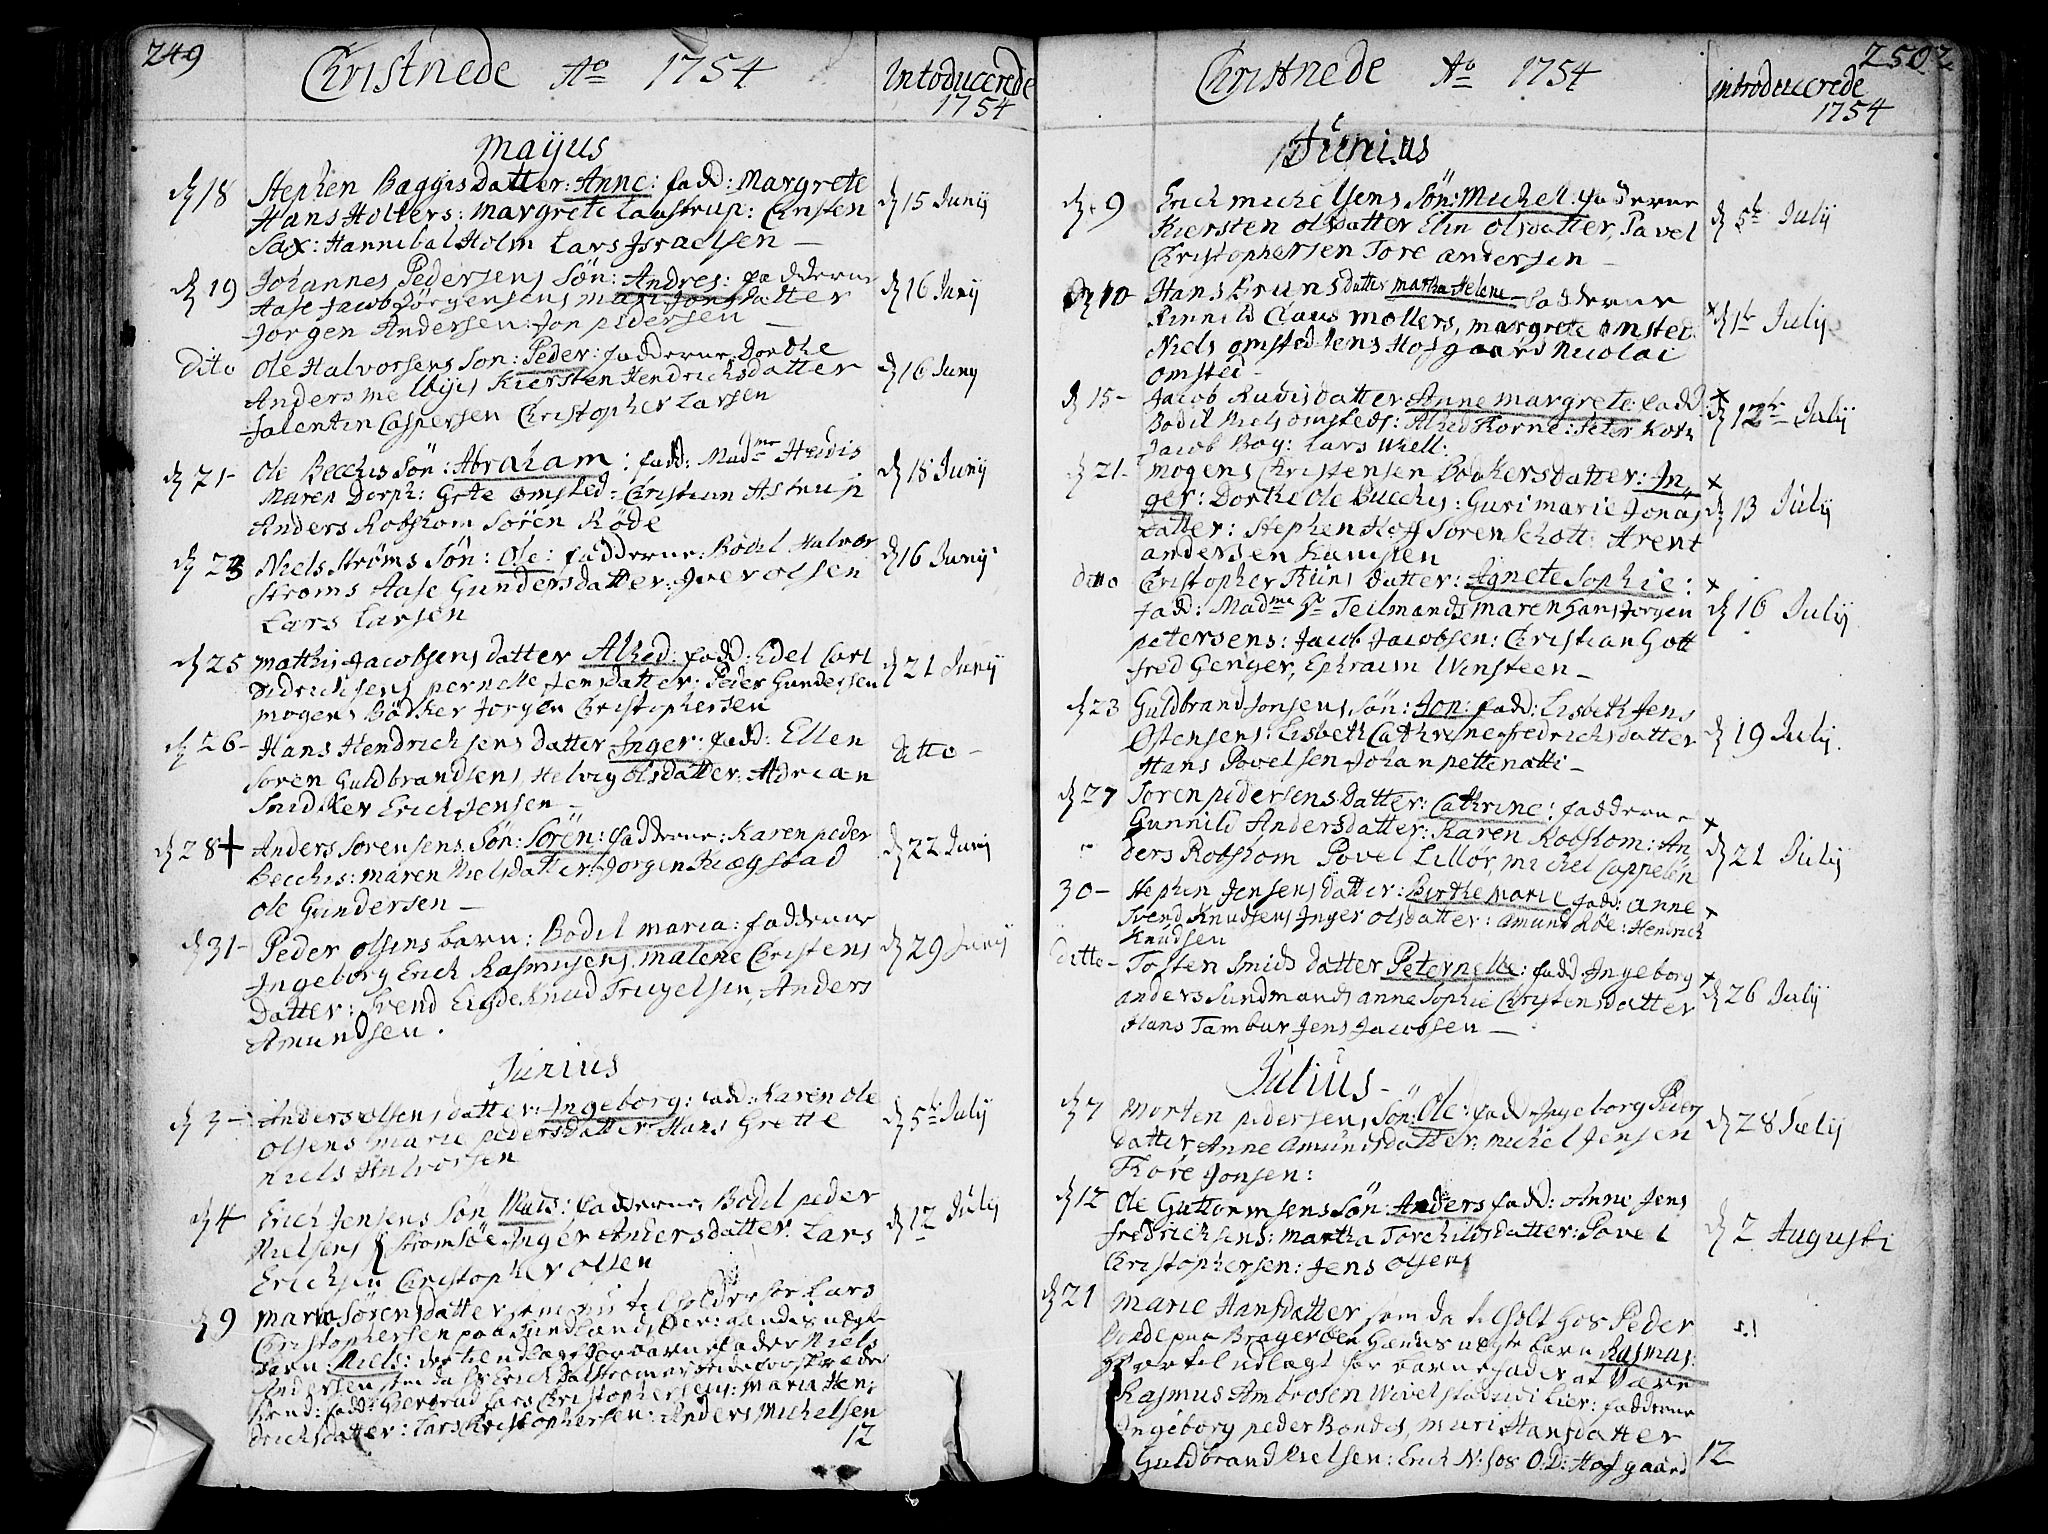 249
Christnede Ao 1754
Introducerede
1754
Maijus
d 18 Stephen Baggis Datter: Anne: fadd: Margrete
Hans Holters: Margrete Laustrup: Christen
Sax: Hannibal Holm Lars Israelsen —
d 15 Junij
d 19 Johannes Pedersens Søn: Andres: fadderne
Aase Jacob Jörgensens, Mari Jonsdatter
Jorgen Andersen: Jon pedersen —
d 16 Junij
Dito Ole Halvorsens Son: Peder: fadderne, Dorthe
Anders Kiersten Hendrichsdatter
Falentin Caspersen Christopher Larsen
d 16 Juny
d 21- Ole Becchis Søn: Abraham: fadd: Madme Heidis
Maren Dorph: Grete Omsted: Christian Astrup
Anders Robshom Sören Röde
d 18 Junij
d 23 Niels Strøms Søn: Ole: fadderne: Bodil Halvor
Strøms Aase Gundersdatter: Iver olsen
Lars Larsen
d 16 Junij
d 25 Mathis Jacobsens datter Alhed: fadd: Edel Carl
Didrichsens, pernelle Jensdatter: Peder Gundersen
Mogens Bödker Jorgen Christophersen
d 21 Junij
d 26- Hans Hendrichsens datter Inger: fadd: Ellen
Soren Guldbrandsens, Helvig olsdatter: Adrian
Snidker Erich Jensen —
ditto —
d 28 + Anders Sorensens Søn: Sören: fadderne: Karen peder
Becchis: Maren Nielsdatter: Jorgen Kiægstad
Ole Gundersen —
d 22 Junij
d 31- Peder olsens barn: Bodil maria: fadderne
Ingeborg Erich Rasmusens, Malene Christens
Datter: Svend Knud Truyelsen, Anders
Amundsen.
d 29 Junij
Junius
d 3- Anders olsens datter: Ingeborg: fadd: Karen ole
olsens marie pedersdatter: Hans Grette
Niels Halvorsen
d 5te July
d 4 Erich Jensens Søn Mats: fadderne, Bodil peder
Nielsens Strømsöe Inger Andersdatter: Lars
Erichsen Christopher olsen
d 12 July
d 9 Maria Sörensdatter som nu tilholder hos Lars
Christophersen paa Sundland, Der: Hendes uægte
barn: Niels: dertil udlagt for barnefader Niels
Andersen
fadd: Giertrud Lars Christophersens: Maria Hen-
drichsdatter: Lars Christophersen: Anders Michelsen
12
2502
Christnede Ao 1754
introducerede
1754
Junius
d 9 Erich michelsens Søn: Michell: fadderne
Kiersten olsdatter Elin olsdatter, Pavel
Christophersen Tore andersen —
d 5te Julij
d 10 Hans Bruns datter martha Helene fadderne
Rennild Claus mollers, margrete omsted
Niels omsted Jens Hofgaard Nicolai
omsted —
x d 1te July
d 15- Jacob Rudis datter Anne margrete: fadd
Bodil Niels omsteds: Alhed Thorne: Peter Koth
Jacob Bog: Lars Wiell:
x d 12te July
d 21- mogens Christensen Bödkers datter: In
ger: Dorthe Ole Becchis: Guri marie Jonas
datter: Stephen Hoff Soren Schott: Arent
andersen Kampen
x d 13 Julij
ditto Christopher Thuns datter: Agnete Sophie:
fadd: Madme Sl Teilmands maren Hans Jorgen
petersens: Jacob Jacobsen: Christian Gott
fred Genger, Ephraim Winsteen —
x d 16 Julij
d 23 Guldbrand Jonsens, Søn: Jon: fadd: Lisbeth Jens
Østensens: Lisbeth Cathrine fredrichsdatter
Hans Povelsen Johan pettenatti —
d 19 Julij.
d 27 Soren pedersens datter: Cathrine: fadderne
Gunnild Andersdatter: Karen Robshom: An
ders Robshom Povel Lillör, michel Cappelen
x d 21 Julij
30- Stephen Jensens datter: Birthe Marie fadd: anne
Svend Knudsens, Inger olsdatter: Amund Röe: Hendrich
Knudsen
x
ditto- Tosten Smids datter Peternelle: fadd: Ingeborg
anders Sundmands anne Sophie Christensdatter
Hans Tambur Jens Jacobsen —
x d 26 Julij
Julius-
d 7 Morten pedersens, Søn: Ole: fadd: Ingeborg Peders
datter Anne Amundsdatter: michel Jensen
Thore Jonsen:
d 28 Julij
d 12 Ole Guttormsens Søn: Anders fadd: Anne Jens
fredrichsens: martha Torchildsdatter: Povel
Christophersen: Jens olsens
d 2 Augusti
d 21 Marie Hansdatter som da tilholt hos Peder
Bonde paa Bragernes Hendes uægte barn Rasmus:
hvortil udlagt for barnefader at være
Rasmus Ambrosen Wivelstad i Lier: fadderne
Ingeborg peder Bondes, Mari Hansdatter
Guldbrand Nielsen: Erich N: hos O: D: Hofgaard
12